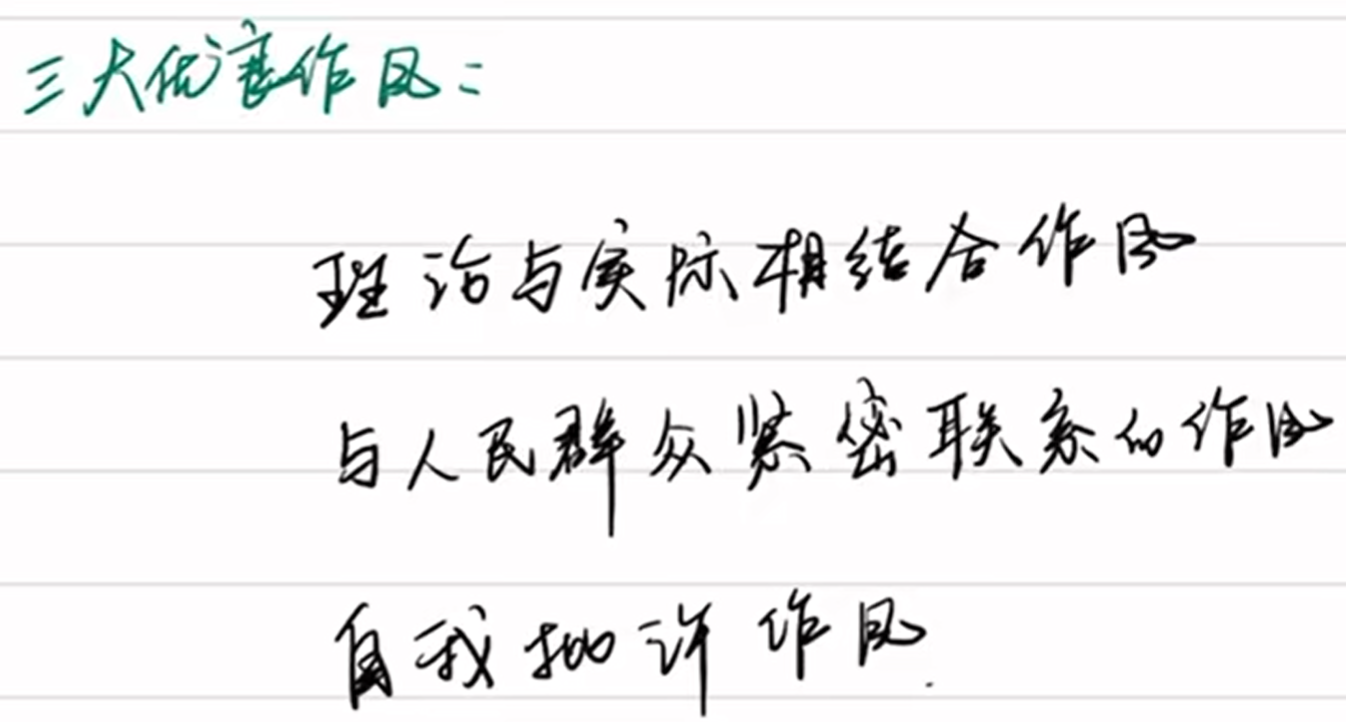 三大优良作风：
理论与实际相结合作风
与人民群众紧密联系的作风
自我批评作风.